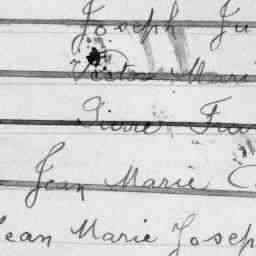 Joseph Ju
Victor Mari
Pierre Fra
Jean Marie C
Jean Marie Josep